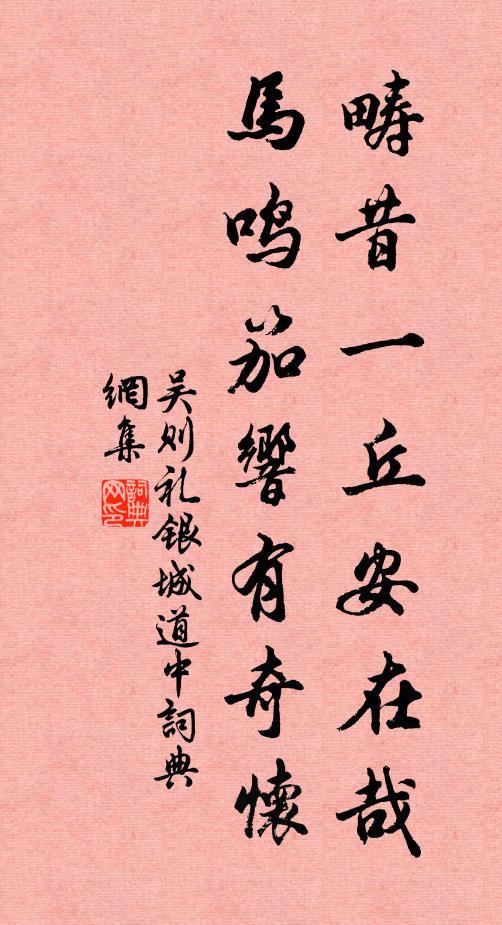 疇昔一丘安在哉
馬鳴笳響有奇懷
吴则礼银城道中詞典
網集
詞典
网印